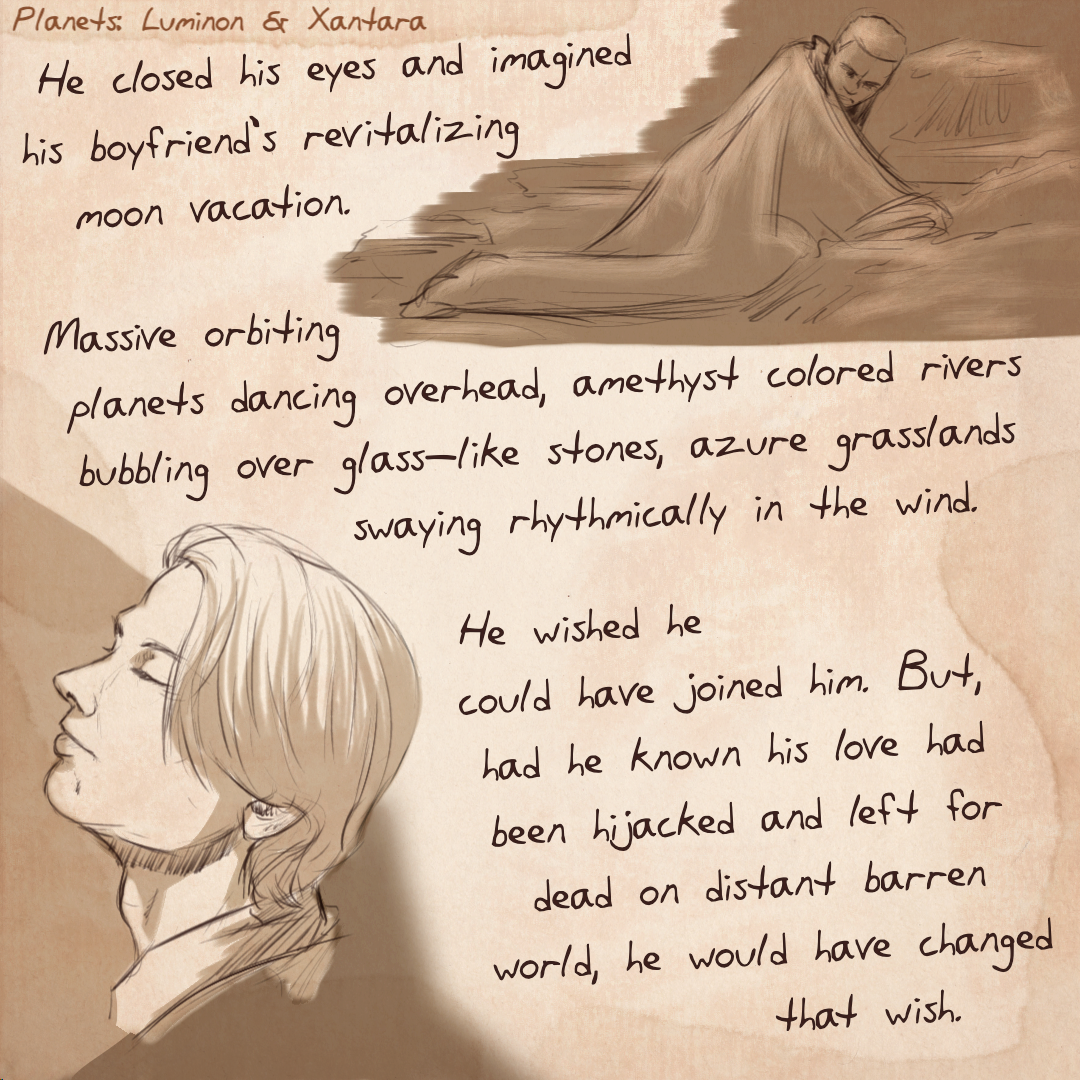 Planets: Luminon & Xantara
He closed his eyes and imagined
his boyfriend's revitalizing
moon vacation.
Massive orbiting
planets dancing overhead, amethyst colored rivers
bubbling over glass-like stones, azure grasslands
swaying rhythmically in the wind.
He wished he
could have joined him. But,
had he known his love had
been hijacked and left for
dead on distant barren
world, he would have changed
that wish.